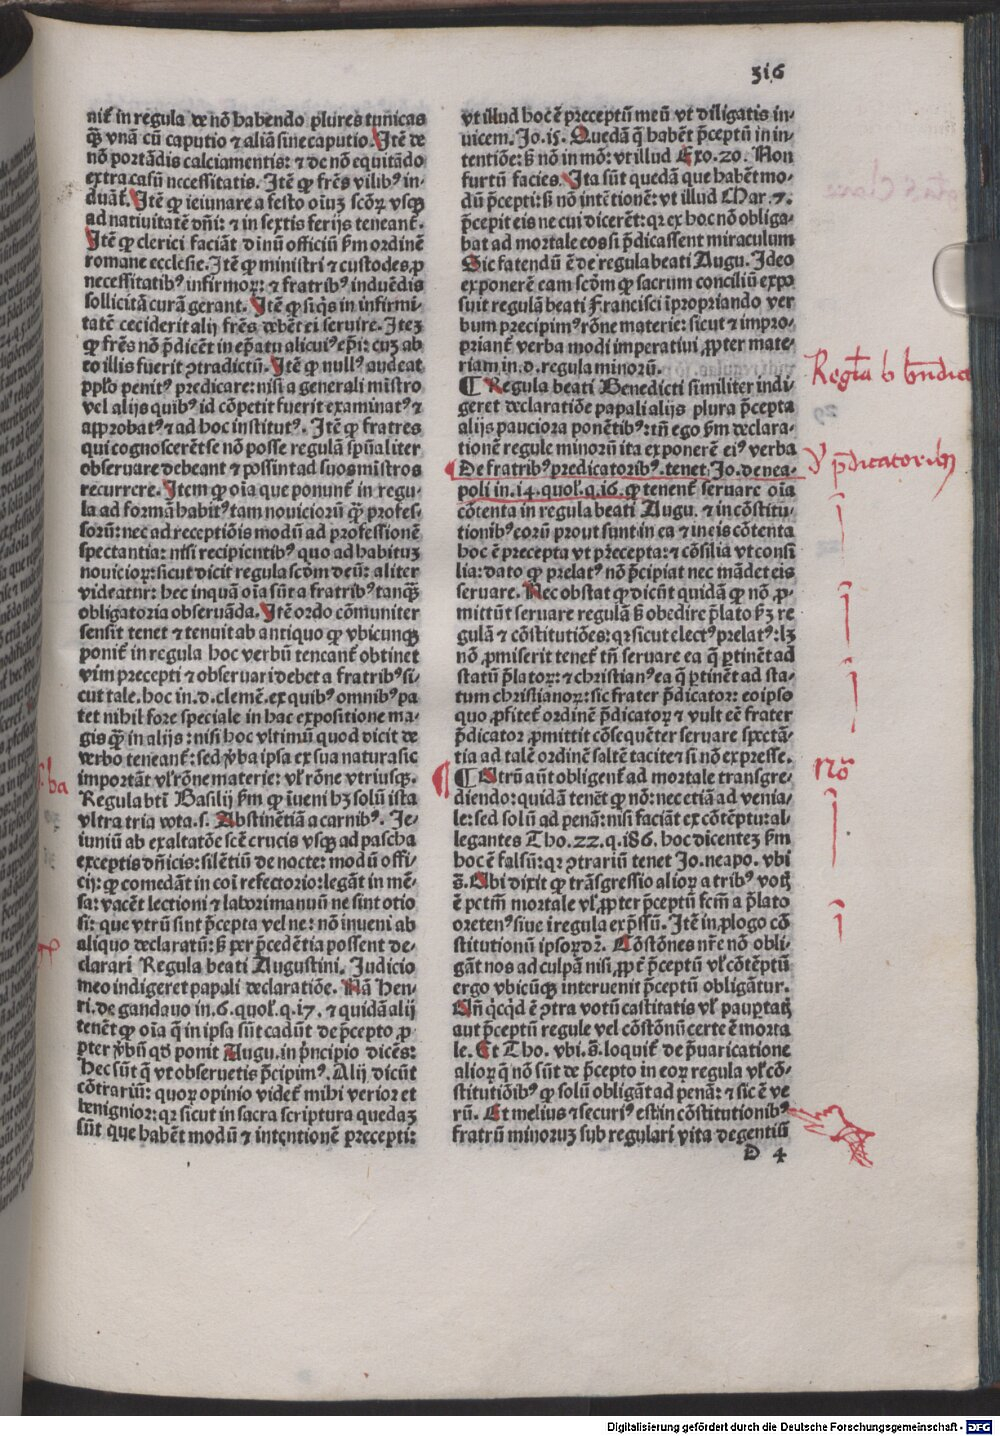 316
nit̃ in regula de nõ habendo plures tunicas
q̃ȝ vnã cũ caputio ⁊ aliã sine caputio. Jtẽ de
nõ portãdis calciamentis: ⁊ de nõ equitãdo
extra casũ necessitatis. Jtẽ ꝙ frẽs vilibꝰ in-
duãt̃. Jtẽ ꝙ ieiunare a festo oĩuʒ scõꝝ vsqʒ
ad natiuitatẽ dñi: ⁊ in sextis ferijs teneant̃.
Jtẽ ꝙ clerici faciãt diuinũ officiũ ẜm ordinẽ
romane ecclesie. Jtẽ ꝙ ministri ⁊ custodes ꝓ
necessitatibꝰ infirmoꝝ: ⁊ fratribꝰ induẽdis
sollicitã curã gerant. Jtẽ ꝙ si q̃s in infirmi-
tatẽ ceciderit alij frẽs debẽt ei seruire. Jteʒ
ꝙ frẽs nõ p̃dicẽt in ep̃atu alicuiꝰ ep̃i: cuʒ ab
eo illis fuerit ꝯtradictũ. Jtẽ ꝙ nullꝰ audeat
ppl̃o penitꝰ predicare: nisi a generali mĩstro
vel alijs quibꝰ id cõpetit fuerit examinatꝰ ⁊
approbatꝰ ⁊ ad hoc institutꝰ. Jtẽ ꝙ fratres
qui cognoscerẽt se nõ posse regulã sp̃ualiter
obseruare debeant ⁊ possint ad suos mĩstros
recurrere. Jtem ꝙ oĩa que ponunt̃ in regu-
la ad formã habitꝰ tam nouiciorũ q̃ȝ profes-
sorũ: nec ad receptiõis modũ ad professionẽ
spectantia: nisi recipientibꝰ quo ad habituʒ
nouicioꝝ: sicut dicit regula scđm deũ: aliter
videatur: hec inquã oĩa sũt a fratribꝰ tanq̃ȝ
obligatoria obseruãda. Jtẽ ordo cõmuniter
sensit tenet ⁊ tenuit ab antiquo ꝙ vbicunqʒ
ponit̃ in regula hoc verbũ teneant̃ obtinet
vim precepti ⁊ obseruari debet a fratribꝰ si-
cut tale. hoc in .d. clemẽ. ex quibꝰ omnibꝰ pa
tet nihil fore speciale in hac expositione ma-
gis q̃ȝ in alijs: nisi hoc vltimũ quod dicit de
verbo teneant̃: sed v̾ba ipsa ex sua natura sic
important vl̃ rõne materie: vl̃ rõne vtriusqʒ.
Regula bti Basilij ẜm ꝙ iueni hʒ solũ ista
vltra tria vota .s. Abstinẽtiã a carnibꝰ. Je-
iuniũ ab exaltatõe scẽ crucis vsqʒ ad pascha
exceptis dñicis: silẽtiũ de nocte: modũ offi-
cij: ꝙ comedãt in coĩ refectorio: legãt in mẽ-
sa: vacẽt lectioni ⁊ labori manuũ ne sint otio
si: que vtrũ sint p̃cepta vel ne: nõ inueni ab
aliquo declaratũ: ẜ per p̃cedẽtia possent de-
clarari Regula beati Augustini. Judicio
meo indigeret papali declaratiõe. Nã Hen-
ri. de gandauo in .6. quol̃. q. 17. ⁊ quidã alij
tenẽt ꝙ oĩa q̃ in ipsa sũt cadũt de p̃cepto ꝓ
pter v̾bũ qđ ponit Augu. in p̃ncipio dicẽs:
Hec sũt q̃ vt obseruetis p̃cipimꝰ. Alij dicũt
cõtrariũ: quoꝝ opinio videt̃ mihi verior et
benignior: qꝛ sicut in sacra scriptura quedaʒ
sũt que habẽt modũ ⁊ intentionẽ precepti:
vt illud hoc ẽ preceptũ meũ vt diligatis in-
uicem. Jo. 15. Quedã q̃ habẽt p̃ceptũ in in-
tentiõe: ẜ nõ in mõ: vt illud Exo. 20. Non
furtũ facies. Jta sũt quedã que habẽt mo-
dũ p̃cepti: ẜ nõ intẽtionẽ: vt illud Mar. 7.
p̃cepit eis ne cui dicerẽt: qꝛ ex hoc nõ obliga-
bat ad mortale eos si p̃dicassent miraculum
Sic fatendũ ẽ de regula beati Augu. Jdeo
exponerẽ eam scđm ꝙ sacrum conciliũ expo
suit regulã beati Francisci ĩpropriando ver
bum precipimꝰ rõne materie: sicut ⁊ impro-
priant̃ verba modi imperatiui ꝓpter mate-
riam in .d. regula minorũ.
¶ Regula beati Benedicti similiter indi
geret declaratiõe papali alijs plura p̃cepta
alijs pauciora ponẽtibꝰ: tñ ego ẜm declara-
tionẽ regule minorũ ita exponerẽ eiꝰ verba
De fratribꝰ predicatoribꝰ. tenet Jo. de nea-
poli in .14. quol̃. q. 16. ꝙ tenent̃ seruare oĩa
cõtenta in regula beati Augu. ⁊ in cõstitu-
tionibꝰ eorũ prout sunt in ea ⁊ in eis cõtenta
hoc ẽ precepta vt precepta: ⁊ cõsilia vt consi
lia: dato ꝙ prelatꝰ nõ p̃cipiat nec mãdet eis
seruare. Nec obstat ꝙ dicũt quidã ꝙ nõ ꝓ-
mittũt seruare regulã ẜ obedire p̃lato ẜʒ re
gulã ⁊ cõstitutiões: qꝛ sicut electꝰ prelatꝰ: lʒ
nõ ꝓmiserit tenet̃ tñ seruare ea q̃ ꝑtinẽt ad
statũ p̃latoꝝ: ⁊ christianꝰ ea q̃ ꝑtinẽt ad sta-
tum christianoꝝ: sic frater p̃dicator: eo ipso
quo ꝓfitet̃ ordinẽ p̃dicatoꝝ ⁊ vult eẽ frater
p̃dicator ꝓmittit cõsequẽter seruare spectã-
tia ad talẽ ordinẽ saltẽ tacite ⁊ si nõ expresse.
¶ Utrũ aũt obligent̃ ad mortale transgre-
diendo: quidã tenẽt ꝙ nõ: nec etiã ad venia-
le: sed solũ ad penã: nisi faciãt ex cõtẽptu: al-
legantes Tho. 22. q. 186. hoc dicentez ẜm
hoc ẽ falsũ: qꝛ ꝯtrariũ tenet Jo. neapo. vbi
s̃. Ubi dixit ꝙ trãsgressio alioꝝ a tribꝰ votꝭ
ẽ pctm̃ mortale vl̃ ꝓpter p̃ceptũ fcm̃ a p̃lato
oretenꝰ siue ĩ regula exp̃ssũ. Jtẽ in ꝓlogo cõ
stitutionũ ipsoꝝ dr̃. Cõstões nr̃e nõ obli-
gãt nos ad culpã nisi ꝓpt̃ p̃ceptũ vl̃ cõtẽptũ
ergo vbicũqʒ interuenit p̃ceptũ obligãtur.
Uñ q̃cq̃d ẽ ꝯtra votũ castitatis vl̃ pauꝑtatꝭ
aut p̃ceptũ regule vel cõstõnũ certe ẽ morta
le. Et Tho. vbi .s̃. loquit̃ de p̃uaricatione
alioꝝ q̃ nõ sũt de p̃cepto in eoꝝ regula vl̃ cõ-
stitutiõibꝰ ꝙ solũ obligãt ad penã: ⁊ sic ẽ ve
rũ. Et melius ⁊ securiꝰ est in cõstitutionibꝰ
fratrũ minoruʒ sub regulari vita degentiũ
D 4
Regl̃a b bñdic
D' p̃dicatoribꝰ
Nõ
Digitalisierung gefördert durch die Deutsche Forschungsgemeinschaft - DFG